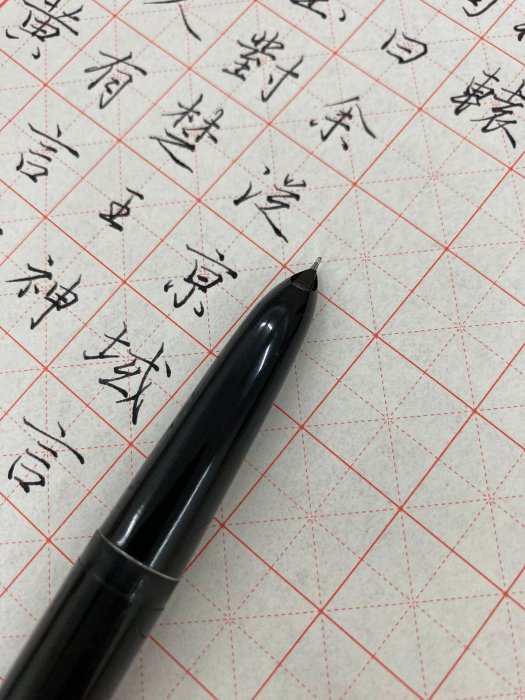 黃
人有言
對楚王神
曰余從京域言
轅